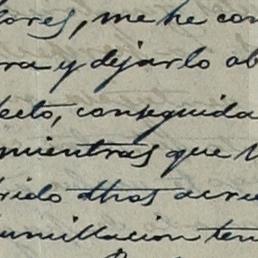 lores, me he con
ra y dejarlo ab
ecto, conseguida
mientras que l
rido dhos acree
umillacion ten